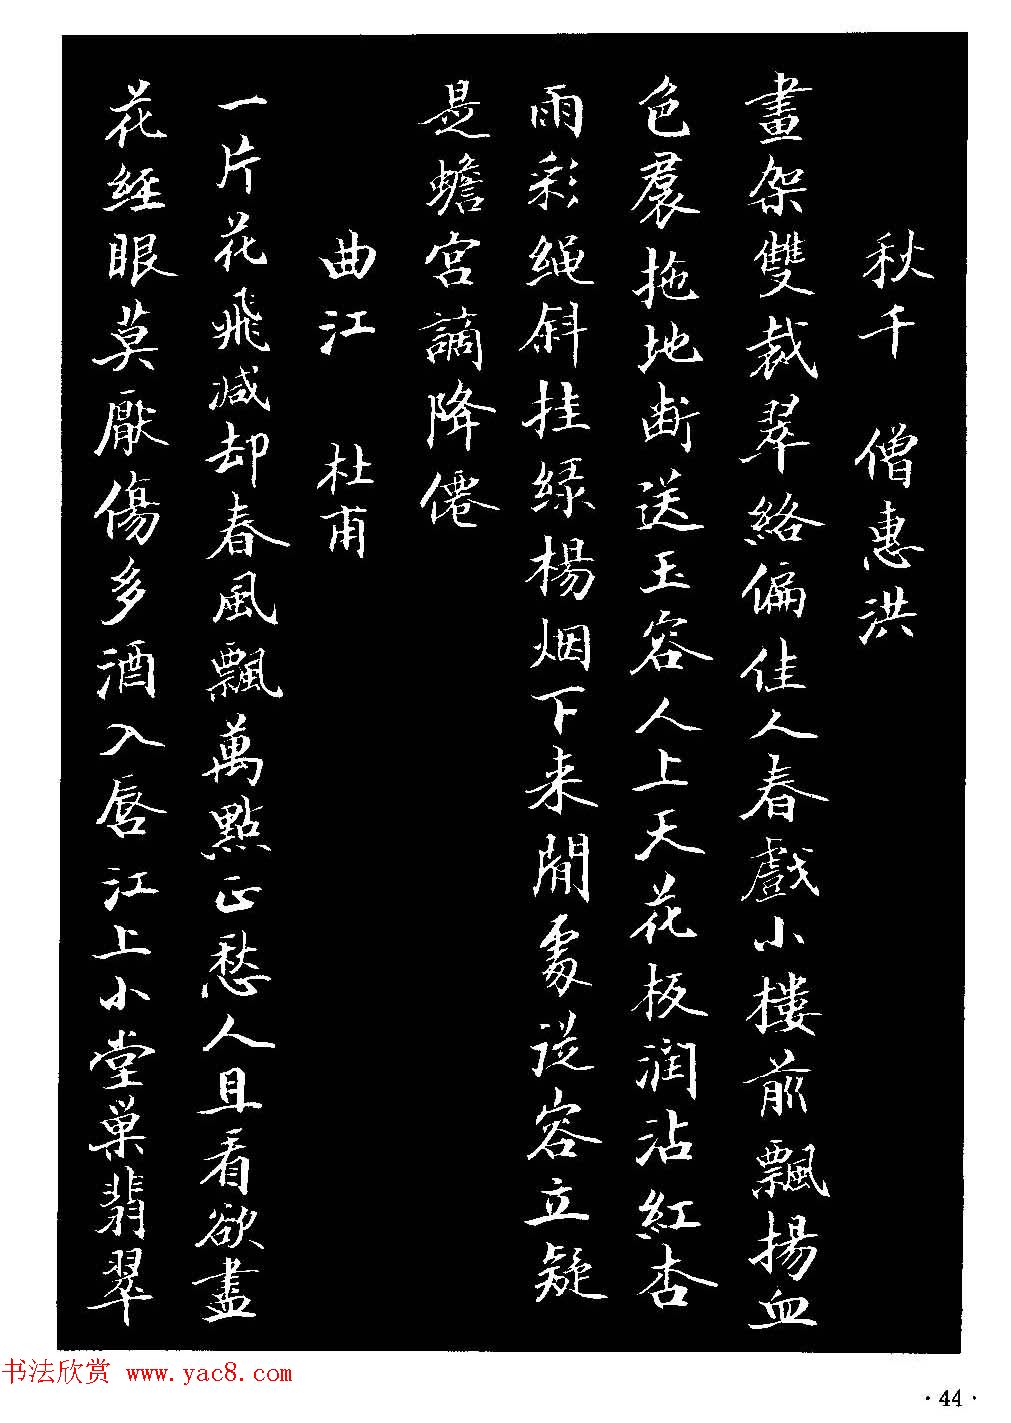 秋千 僧惠洪
畫架雙裁翠絡偏佳人春戲小樓前飄揚血
色裠拖地断送玉容人上天花板润沾紅杏
雨彩绳斜挂绿楊烟下来閒處從容立疑
是蟾宮謫降僊
曲江 杜甫
一片花飛减却春風飄萬點正愁人且看欲盡
花经眼莫厭傷多酒入唇江上小堂巢翡翠
书法欣赏 www.yac8.com
·44·